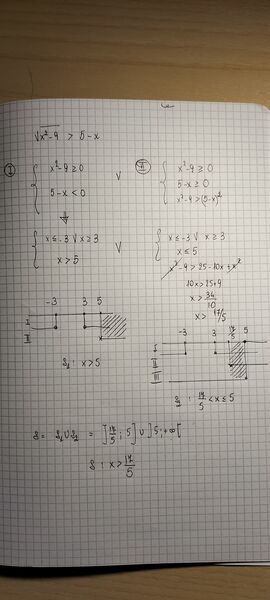 √x²-9 > 5-x
I
x²-9≥0
5-x<0
V
II
x²-9≥0
5-x≥0
x²-9>(5-x)²
⇓
x≤-3 V x≥3
x>5
V
x≤-3 V x≥3
x≤5
x²-9>25-10x+x²
10x>25+9
x>34/10
x>17/5
-3 3 5
I
II
S₁: x>5
-3 3 17/5 5
I
II
III
S₂: 17/5<x≤5
S = S₁∪S₂ = ]17/5; 5]∪]5;+∞[
S: x>17/5